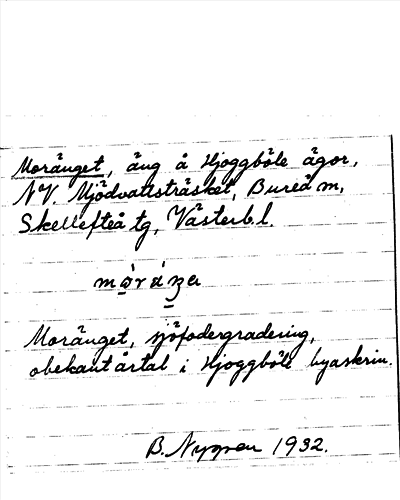 Moränget, äng å Hjoggböle ägor,
N V. Mjödvattsträsket, Bureå m,
Skellefteå tg, Västerb. l.
Moränget, sjöfodergradering,
obekant årtal i Hjoggböle byaskrin.
B. Nygren 1932.